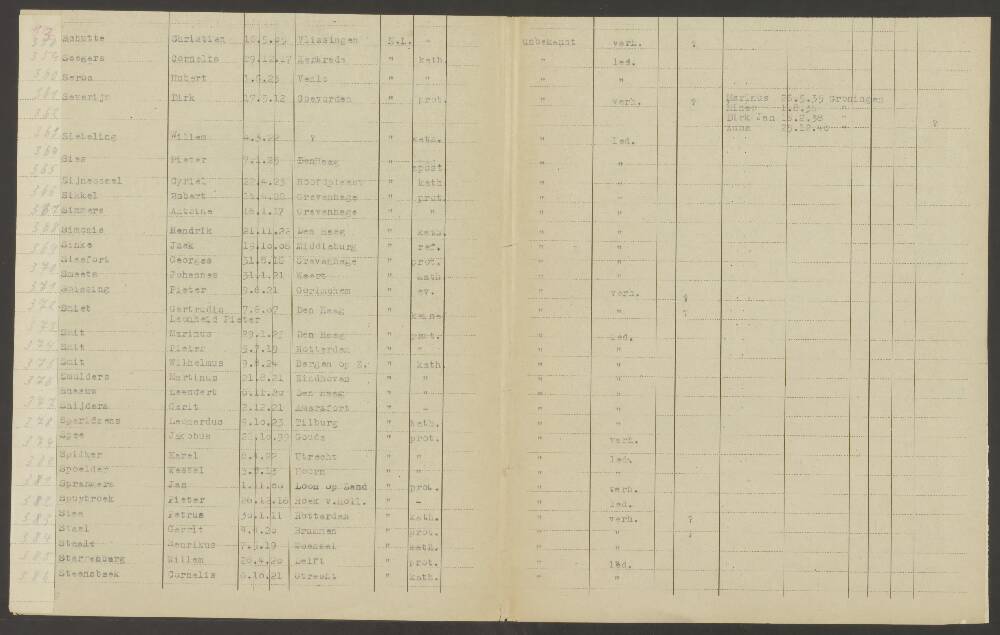 Schutte Christian 16.5.05 Vlissingen N.L. - unbekannt verh. ?
359 Seegers Cornelis 29.12.17 Kerkrade " kath. " led.
360 Seron Hubert 1.6.23 Venlo " " " "
361 Severijn Dirk 17.5.12 Coevorden " prot. " verh. ? Marinus 26.5.35 Groningen
362 "
Dirk Jan 15.2.38 "
Anna 25.12.40 " ?
363 Siebeling Willem 4.3.22 ? " kath. " led.
364 Sies Pieter 7.1.23 Den Haag " apost " "
365 Sijnesael Cyriel 22.4.23 Hoofdplaat " kath " "
366 Sikkel Robert Gravenhage " prot. " "
367 Simmers Antoine 18.1.17 Gravenhage " " " "
368 Simonis Hendrik 21.11.22 Den Haag " kath. " "
369 Sinke Jaak 19.10.08 Middleburg " ref. " "
Slesfort Georges 31.8.18 Gravenhage " prot. " "
370 Smeets Johannes 31.1.21 Weert " kath " "
371 Pieter 9.8.21 Gorinchem " ev. " verh. ?
372 Smiet Gertrudis 7.8.07 Den Haag " keine " " ?
Leonheid Pieter
373 Smit Marinus 29.1.23 Den Haag " prot. " led.
374 Smit Pieter 3.7.19 Rotterdam " " " "
375 Smit Wilhelmus 9.8.24 Bergen op Z. " kath. " "
376 Smulders Martinus 21.8.21 Eindhoven " " " "
Leendert 6.11.20 Den Haag " " " "
377 Snijders Gerit 2.12.21 Amersfort " - " "
378 Sparidaens Leonardus 9.10.23 Tilburg " kath. " "
379 Spee Jakobus 22.10.99 Gouda " prot. " verh.
380 Spijker Karel 6.4.22 Utrecht " " " led.
Spoelder Wessel Hoorn " " " "
381 Sprankers Jan Loon op Zand " prot. " verh.
382 Spuybroek Pieter 26.12.16 Hoek v.Holl. " - " led.
383 Petrus 30.1.11 Rotterdam " kath. " verh. ?
Staal Gerrit 9.4.20 Brummen " prot. " " ?
384 Staals Henrikus 7.5.19 Woensel " kath. " "
385 Starrenburg Willem 26.4.20 Delft " prot. " led.
386 Steenbeek Cornelis 6.10.21 Utrecht " kath. " "